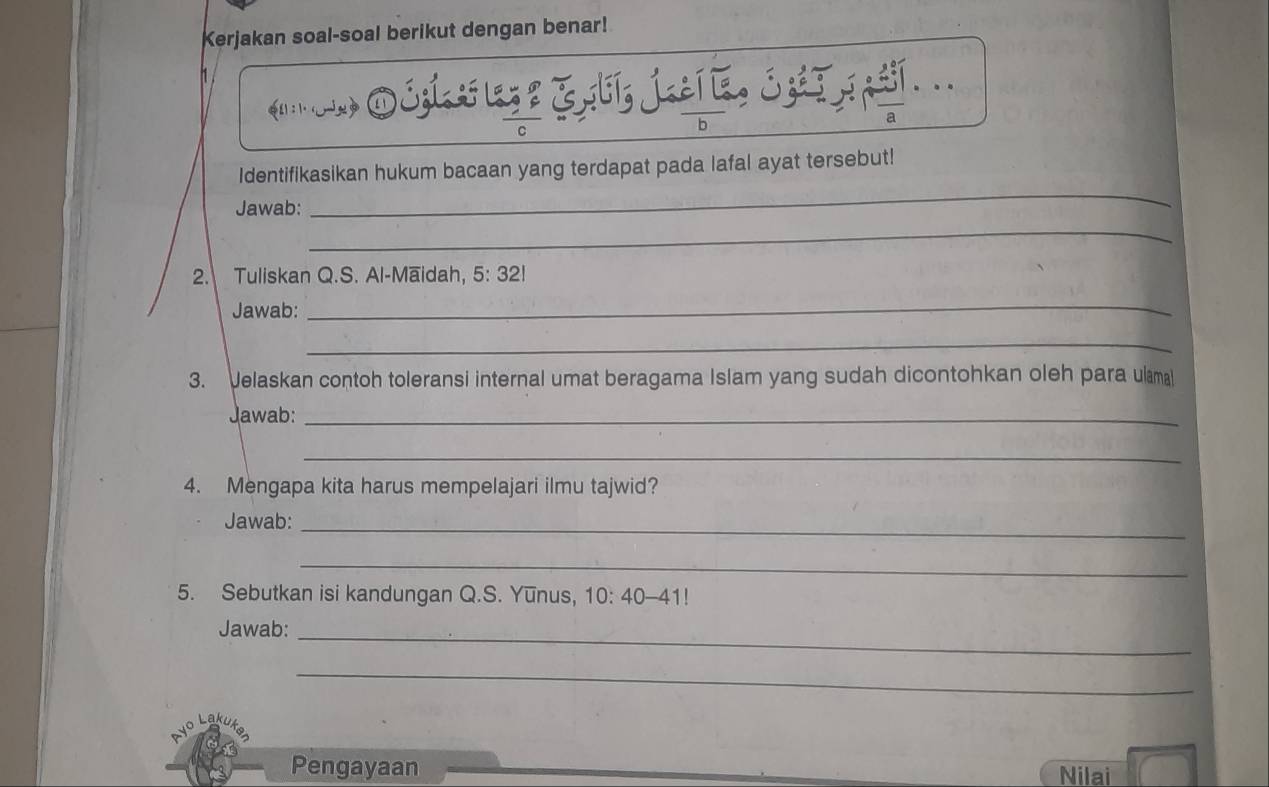 Kerjakan soal-soal berikut dengan benar!
1.
. . . اَنْتُمْ بَرِيْۤـُٔوْنَ مِمَّآ اَعْمَلُ وَاَنَا۠ بَرِيْۤءٌ مِّمَّا تَعْمَلُوْنَ ﴿٤١﴾ ﴿يونس، ١٠: ٤١﴾
a
b
c
Identifikasikan hukum bacaan yang terdapat pada lafal ayat tersebut!
Jawab:
2. Tuliskan Q.S. Al-Māidah, 5: 32!
Jawab:
3. Jelaskan contoh toleransi internal umat beragama Islam yang sudah dicontohkan oleh para ulama!
Jawab:
4. Mengapa kita harus mempelajari ilmu tajwid?
Jawab:
5. Sebutkan isi kandungan Q.S. Yūnus, 10: 40–41!
Jawab:
Ayo Lakukan
Pengayaan
Nilai